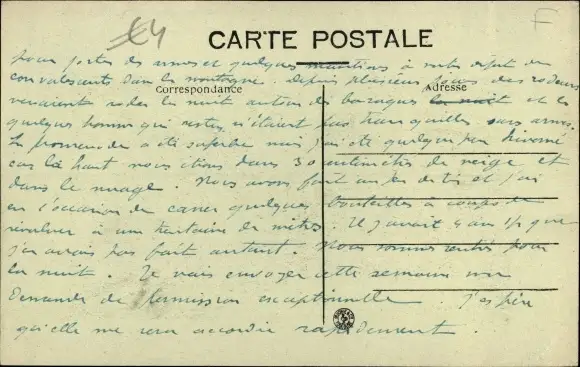 £4
F
CARTE POSTALE
Correspondance
Adresse
pour porter des armes et quelques munitions à notre dépôt de
convalescents dans la montagne. Depuis plusieurs jours des rodeurs
venaient roder la nuit autour des baraques la nuit et les
quelques hommes qui restent n'étaient pas tranquilles sans armes.
La promenade a été superbe mais j'ai été quelque peu
car là haut nous étions dans 30 centimètres de neige et
dans le nuage. Nous avons fait un peu de tir et j'ai
eu l'occasion de casser quelques bouteilles à coups de
révolver à une trentaine de mètres. Il y avait 4 ans 1/2 que
j'en avais pas fait autant. Nous sommes rentrés pour
la nuit. Je vais envoyer cette semaine une
demande de permission exceptionnelle. J'espère
qu'elle me sera accordée rapidement.